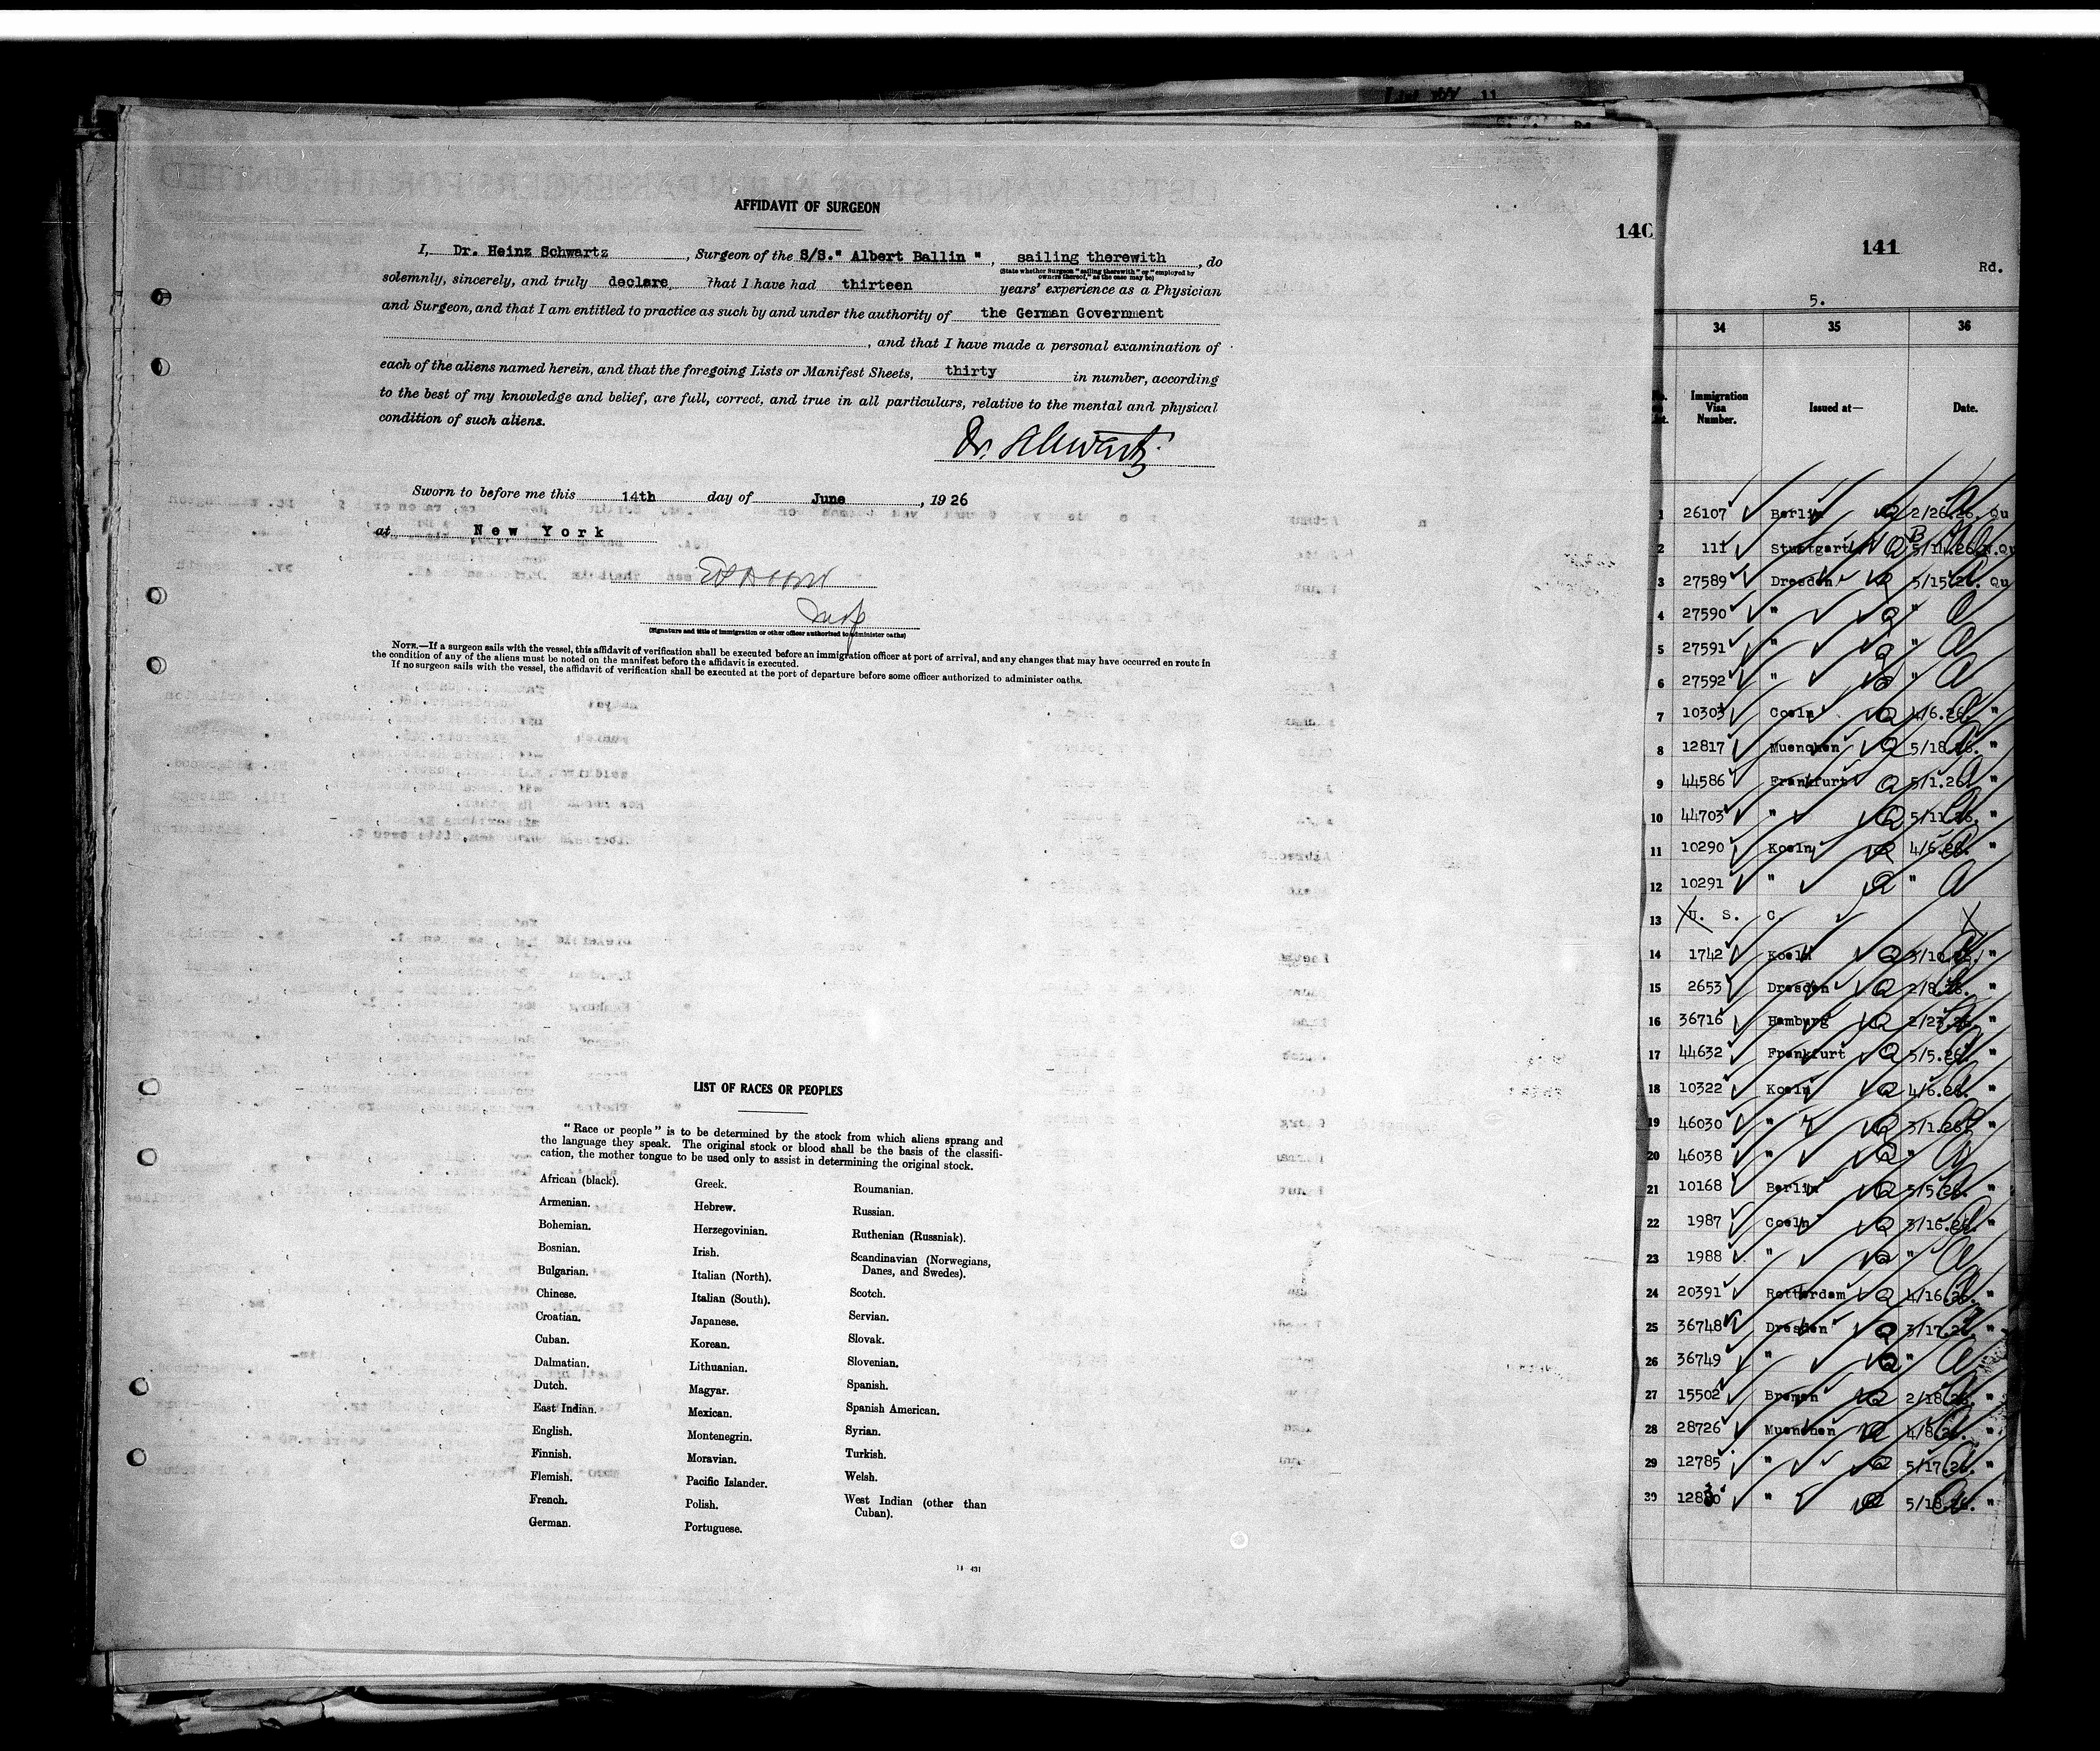 AFFIDAVIT OF SURGEON
I, Dr. Heinz Schwartz, Surgeon of the S/S." Albert Ballin ", sailing therewith, do
(State whether Surgeon "sailing therewith" or "employed by
owners thereof," as the case may be)
solemnly, sincerely, and truly declare that I have had thirteen years' experience as a Physician
and Surgeon, and that I am entitled to practice as such by and under the authority of the German Government
, and that I have made a personal examination of
each of the aliens named herein, and that the foregoing Lists or Manifest Sheets, thirty in number, according
to the best of my knowledge and belief, are full, correct, and true in all particulars, relative to the mental and physical
condition of such aliens.
Dr. Schwartz.
Sworn to before me this 14th day of June, 1926
at New York
Insp
(Signature and title of immigration or other officer authorized to administer oaths)
NOTE.—If a surgeon sails with the vessel, this affidavit of verification shall be executed before an immigration officer at port of arrival, and any changes that may have occurred en route in
the condition of any of the aliens must be noted on the manifest before the affidavit is executed.
If no surgeon sails with the vessel, the affidavit of verification shall be executed at the port of departure before some officer authorized to administer oaths.
LIST OF RACES OR PEOPLES
"Race or people" is to be determined by the stock from which aliens sprang and
the language they speak. The original stock or blood shall be the basis of the classifi-
cation, the mother tongue to be used only to assist in determining the original stock.
African (black).
Armenian.
Bohemian.
Bosnian.
Bulgarian.
Chinese.
Croatian.
Cuban.
Dalmatian.
Dutch.
East Indian.
English.
Finnish.
Flemish.
French.
German.
Greek.
Hebrew.
Herzegovinian.
Irish.
Italian (North).
Italian (South).
Japanese.
Korean.
Lithuanian.
Magyar.
Mexican.
Montenegrin.
Moravian.
Pacific Islander.
Polish.
Portuguese.
Roumanian.
Russian.
Ruthenian (Russniak).
Scandinavian (Norwegians,
Danes, and Swedes).
Scotch.
Servian.
Slovak.
Slovenian.
Spanish.
Spanish American.
Syrian.
Turkish.
Welsh.
West Indian (other than
Cuban).
140
141
Rd.
5.
34 35 36
Immigration
Visa
Number.
Issued at—
Date.
1 26107 Berlin Q 2/26.26. Qu
2 111 Stuttgart Q 5/14.26.
3 27589 Dresden Q 5/15.26. Qu
4 27590 " Q "
5 27591 " Q "
6 27592 " Q "
7 10303 Coeln Q 4/6.26. "
8 12817 Muenchen Q 5/18.26. "
9 44586 Frankfurt Q 5/1.26. "
10 44703 " Q 5/11.26. "
11 10290 Koeln Q 4/6.26. "
12 10291 " Q "
13 U. S. C.
14 1742 Koeln Q 3/10.26. "
15 2653 Dresden Q 2/8.26. "
16 36716 Hamburg Q 2/23.26. "
17 44632 Frankfurt Q 5/5.26. "
18 10322 Koeln Q 4/6.26. "
19 46030 " Q 3/1.26. "
20 46038 " Q "
21 10168 Berlin Q 5/5.26. "
22 1987 Coeln Q 3/16.26. "
23 1988 " Q "
24 20391 Rotterdam Q 4/16.26. "
25 36748 Dresden Q 3/17.26. "
26 36749 " Q "
27 15502 Bremen Q 2/18.26. "
28 28726 Muenchen Q 4/8.26. "
29 12785 " Q 5/17.26. "
30 " Q 5/18.26. "